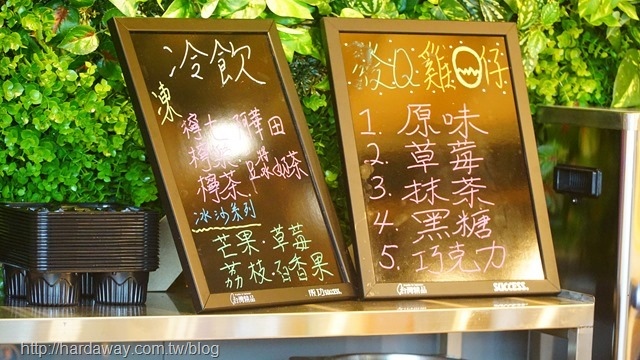 冷飲
凍
檸檬
檸茶
冰沙系列
芒果.草莓
荔枝.百香果
台灣精品
SUCCESS.
發Q.雞蛋仔
1. 原味
2. 草莓
3. 抹茶
4. 黑糖
5 巧克力
台灣精品
SUCCESS.
http://hardaway.com.tw/blog